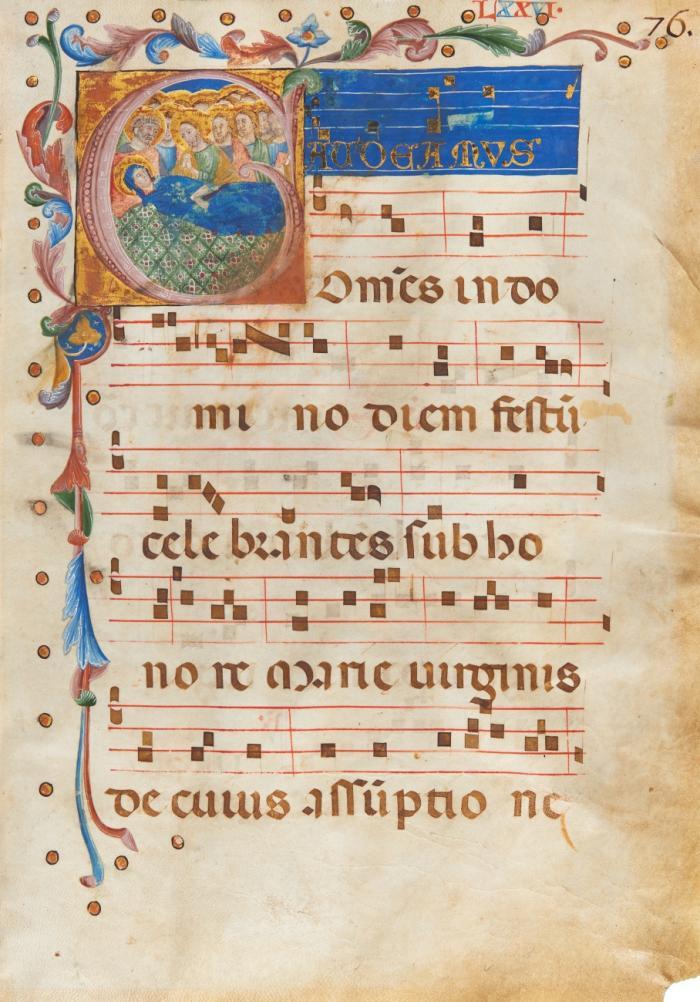 LXXVI.
76.
GAUDEAMUS
Om̄es in do
mi no diem festū
cele brantes sub ho
no re Marie uirginis
de cuius assūptio ne